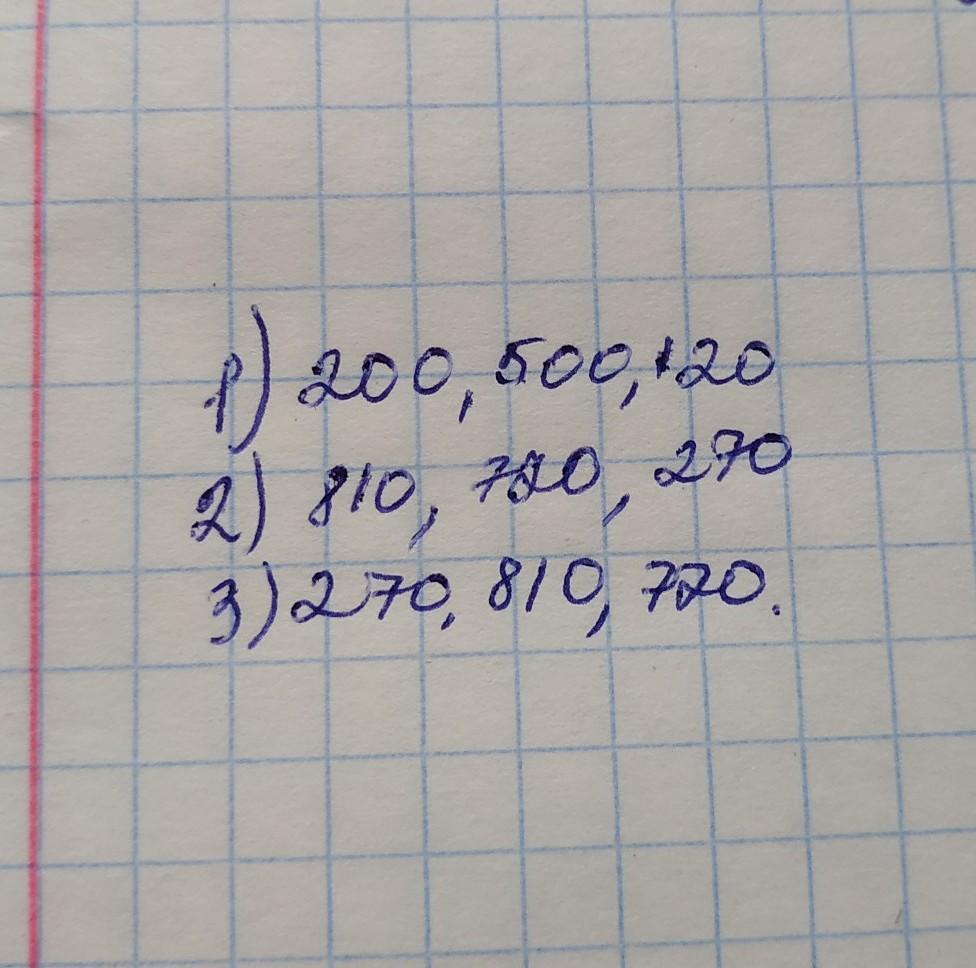 1) 200, 500, 120
2) 810, 720, 270
3) 270, 810, 720.